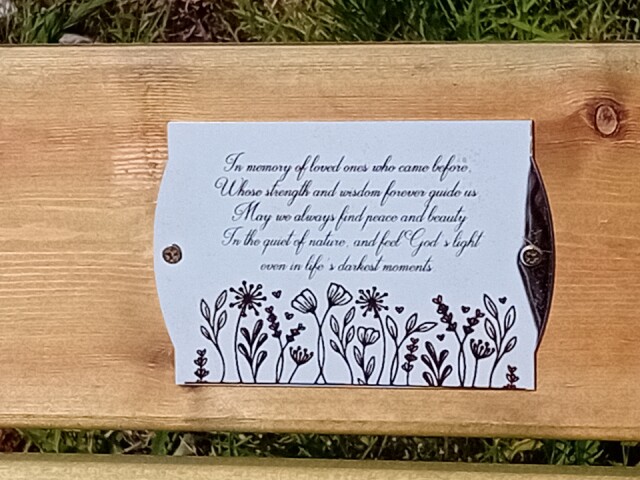 In memory of loved ones who came before,
Whose strength and wisdom forever guide us
May we always find peace and beauty
In the quiet of nature, and feel God's light
even in life's darkest moments